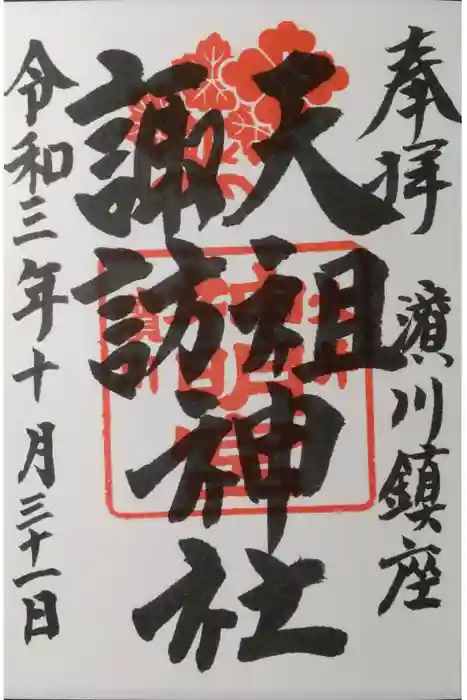 奉拝
濵川鎮座
天祖
諏訪
神社
令和三年十月三十一日